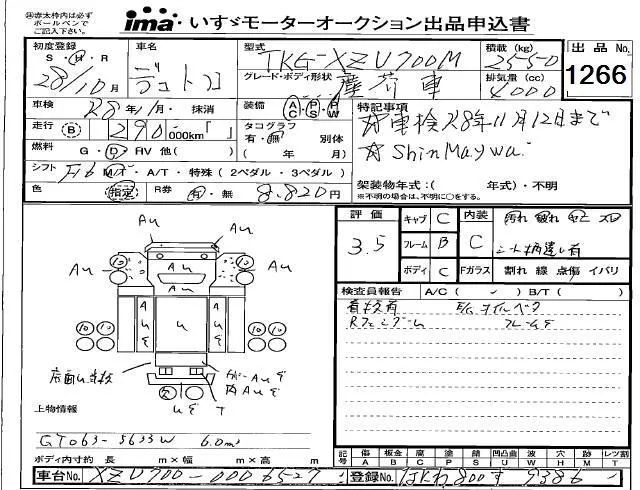 赤太枠内は必ず
ボールペンで
ご記入ください
ima いすゞモーターオークション出品申込書
初度登録
S・H・R
28/10月
車名
デュトロ
型式
TKG-XZU700M
グレード・ボディ形状
塵芥車
積載(kg)
2550
排気量(cc)
4000
出品No.
1266
車検
R8年11月・抹消
装備
AC PS PW
走行 B
290,000km「 」
タコグラフ
有・無 別体
( 年 月)
燃料
G・D・HV 他( )
シフト
F6 M/T・A/T・特殊(2ペダル・3ペダル)
色
指定
R券
有・無
8,820円
特記事項
☆車検R8年11月12日まで
☆ShinMaywa
架装物年式:( 年式)・不明
※不明の場合は、不明に○をする。
評価
3.5
キャブ C
フレーム B
ボディ C
内装
C
汚れ 破れ ヤニ スレ
シート柄違い有
Fガラス
割れ 線 点傷 イバリ
検査員報告 A/C( ✓ ) B/T( )
E/gオイルベタ
Au
Au
Au
Au
10
10
Au
A
U
U
A
U
10 10
10 10
U
T
上物情報
GT063-5633W 6.0m³
ボディ内寸約 長 m×幅 m×高 m
記号
傷 A
板金 B
腐 C
塗 P
錆 S
凹凸曲 U
波 W
穴 H
跡 M
レツ割 T
車台No.
XZU700-0006527
登録No.
800す 9386